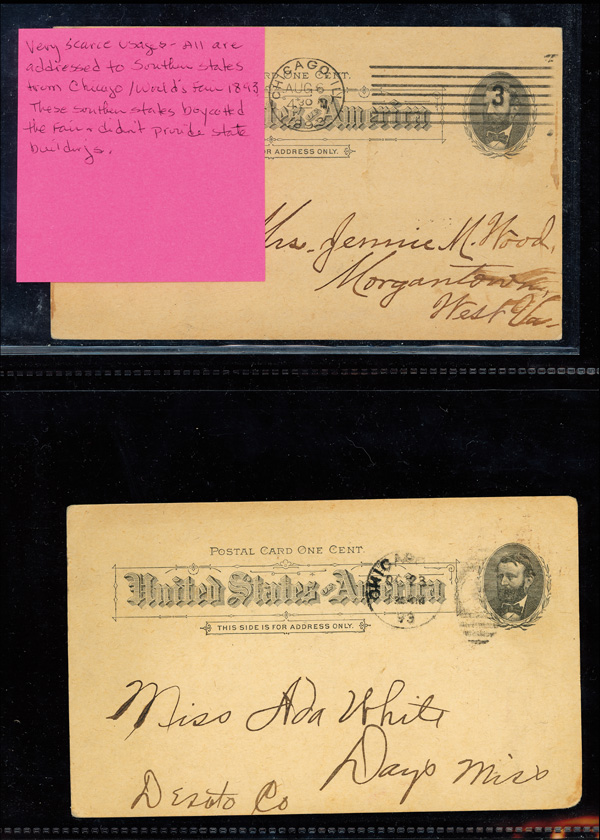 Very scarce usages - All are
addressed to Southern states
from Chicago/World's Fair 1893
These southern states boycotted
the Fair & didn't provide state
buildings.
CHICAGO, ILL.
AUG 6
430 P
3
RD ONE CENT.
es of America
R ADDRESS ONLY.
Mrs. Jennie M. Wood,
Morgantown,
West Va.
POSTAL CARD ONE CENT.
United States of America
THIS SIDE IS FOR ADDRESS ONLY.
CHIC
93
Miss Ada White
Days Miss
Desoto Co